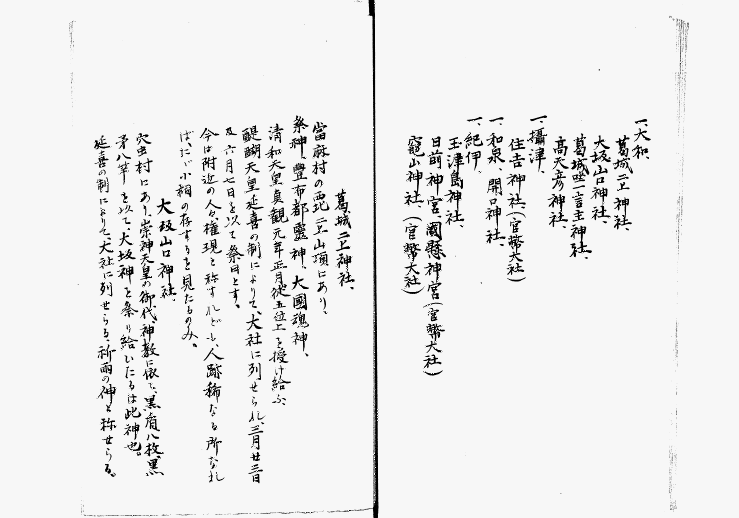 一、大和、
葛城二上神社、
大坂山口神社、
葛城坐一言主神社、
高天彦神社、
一、攝津、
住吉神社、(官幣大社)
一、和泉、開口神社、
一、紀伊、
玉津島神社、
日前神宮、國縣神宮(官幣大社)
竈山神社、(官幣大社)
葛城二上神社、
當麻村の西二上山頂にあり、
祭神、豊布都靈神、大國魂神、
清和天皇貞觀元年正月從五位上を授け給ふ、
醍醐天皇延喜の制によりて、大社に列せられ、三月廿三日
及六月七日を以て祭日とす。
今は附近の人々權現と称すれども、人跡稀なる所なれ
ばたゞ小祠の存するを見たるのみ。
大坂山口神社、
穴虫村にあり、崇神天皇の御代、神教に依て、黒盾八枚、黒
矛八竿を以て、大坂神を祭り給いたるは此神也。
延喜の制によりて、大社に列せらる、祈雨の神と称せらる。